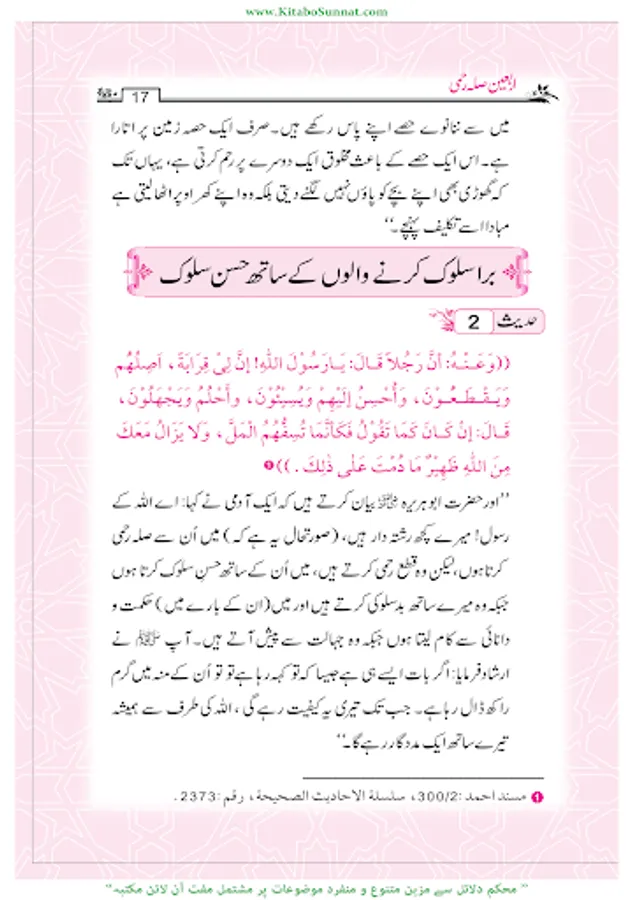 www.KitaboSunnat.com
اربعین صلہ رحمی
17
میں سے ننانوے حصے اپنے پاس رکھے ہیں۔ صرف ایک حصہ زمین پر اتارا
ہے۔ اس ایک حصے کے باعث مخلوق ایک دوسرے پر رحم کرتی ہے، یہاں تک
کہ گھوڑی بھی اپنے بچے کو پاؤں نہیں لگنے دیتی بلکہ وہ اپنے کھر اوپر اٹھا لیتی ہے
مبادا اسے تکلیف پہنچے۔‘‘
برا سلوک کرنے والوں کے ساتھ حسن سلوک
حدیث 2
((وَعَنْهُ: أَنَّ رَجُلاً قَالَ: يَارَسُوْلَ اللهِ! إِنَّ لِيْ قِرَابَةً، اَصِلُهُم
وَيَقْطَعُوْنَ، وَأُحْسِنُ إِلَيْهِمْ وَيُسِيْئُوْنَ، وأَحْلُمُ وَيَجْهَلُوْنَ،
قَالَ: إِنْ كَانَ كَمَا تَقُوْلُ فَكَأَنَّمَا تُسِفُّهُمُ الْمَلَّ، وَلَا يَزَالُ مَعَكَ
مِنَ اللهِ ظَهِيْرٌ مَا دُمْتَ عَلٰى ذٰلِكَ.)) ❶
’’اور حضرت ابو ہریرہ رضی اللہ عنہ بیان کرتے ہیں کہ ایک آدمی نے کہا: اے اللہ کے
رسول! میرے کچھ رشتہ دار ہیں، (صورتحال یہ ہے کہ) میں اُن سے صلہ رحمی
کرتا ہوں، لیکن وہ قطع رحمی کرتے ہیں، میں اُن کے ساتھ حسنِ سلوک کرتا ہوں
جبکہ وہ میرے ساتھ بدسلوکی کرتے ہیں اور میں (ان کے بارے میں) حکمت و
دانائی سے کام لیتا ہوں جبکہ وہ جہالت سے پیش آتے ہیں۔ آپ ﷺ نے
ارشاد فرمایا: اگر بات ایسے ہی ہے جیسا کہ تو کہہ رہا ہے تو تو اُن کے منہ میں گرم
راکھ ڈال رہا ہے۔ جب تک تیری یہ کیفیت رہے گی، اللہ کی طرف سے ہمیشہ
تیرے ساتھ ایک مددگار رہے گا۔‘‘
❶ مسند احمد: 300/2، سلسلة الاحادیث الصحیحة، رقم: 2373.
’’محکم دلائل سے مزین متنوع و منفرد موضوعات پر مشتمل مفت آن لائن مکتبہ‘‘